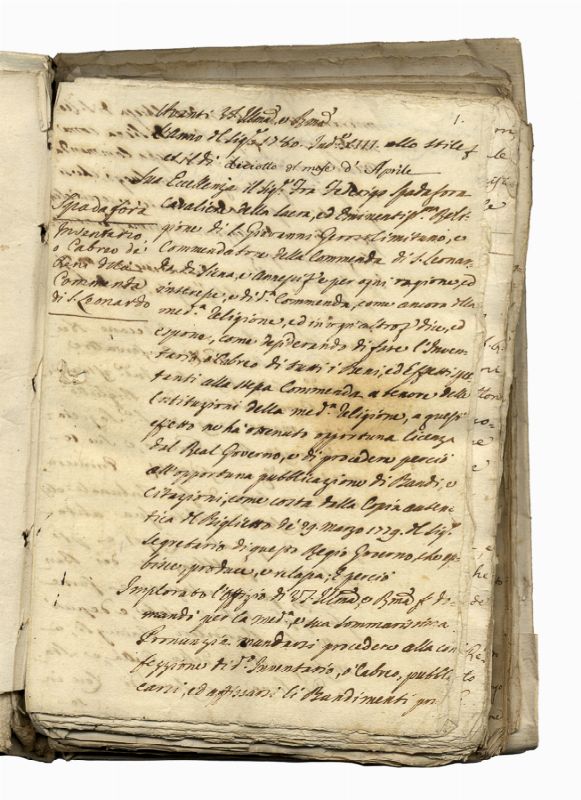 1.
Avanti VS Illma, e Rma
L'anno del Sigre 1780. Indne XIII. allo stile
et il dì diciotto del mese d'Aprile
Sua Eccellenza il Sigr Fra Federigo Spadafora
Cavaliere della Sacra, ed Eminentisma Reli-
gione di S. Giovanni Gerosolimitano, e
Commendatore della Commenda di S. Leonar-
do di Siena, e Annessi, e per ogni ragione, ed
interesse, e di da Commenda, come ancora della
meda Religione, ed in ogni altro dice, ed
espone, come desiderando di fare l'Inven-
tario, o Cabreo di tutti i Beni, ed Effetti spet
tanti alla stessa Commenda a tenore delle
Costituzioni della meda Religione, a quest'
effetto ne ha ottenuto opportuna licenza
dal Real Governo, e di procedere perciò
all'opportuna pubblicazione di Bandi, e
Citazioni, come costa dalla Copia auten-
tica del Biglietto de' 29. Marzo 1779. del Sigr
Segretario di questo Regio Governo, che esi-
bisce, produce, e rilascia; E perciò
Implorato l'Offizio di VS Illma, e Rma di-
mandi per la meda, e sua sommaria
Pronunzia mandarsi procedere alla con
fezzione di do Inventario, o Cabreo, pubbli
carsi, ed affissarsi li Bandimenti per
Spadafora
Inventario
o Cabreo de
Beni della
Commenda
di S. Leonardo